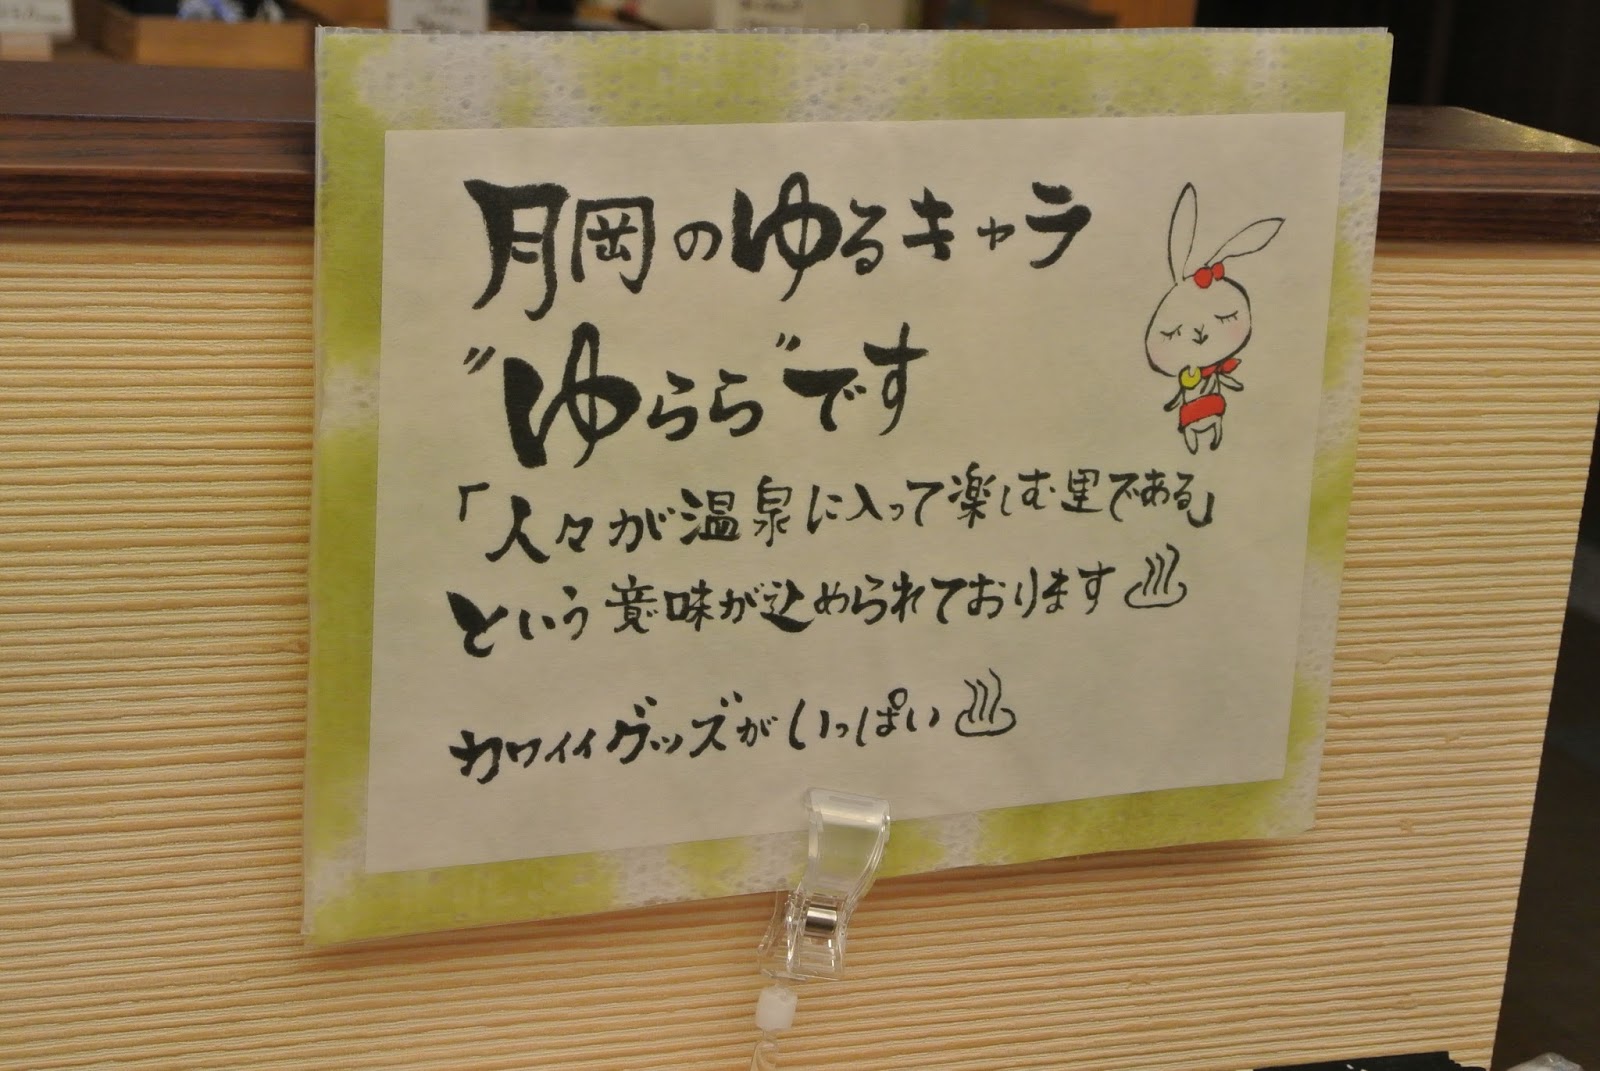 月岡のゆるキャラ
"ゆらら"です
「人々が温泉に入って楽しむ里である」
という意味が込められております♨
カワイイグッズがいっぱい♨